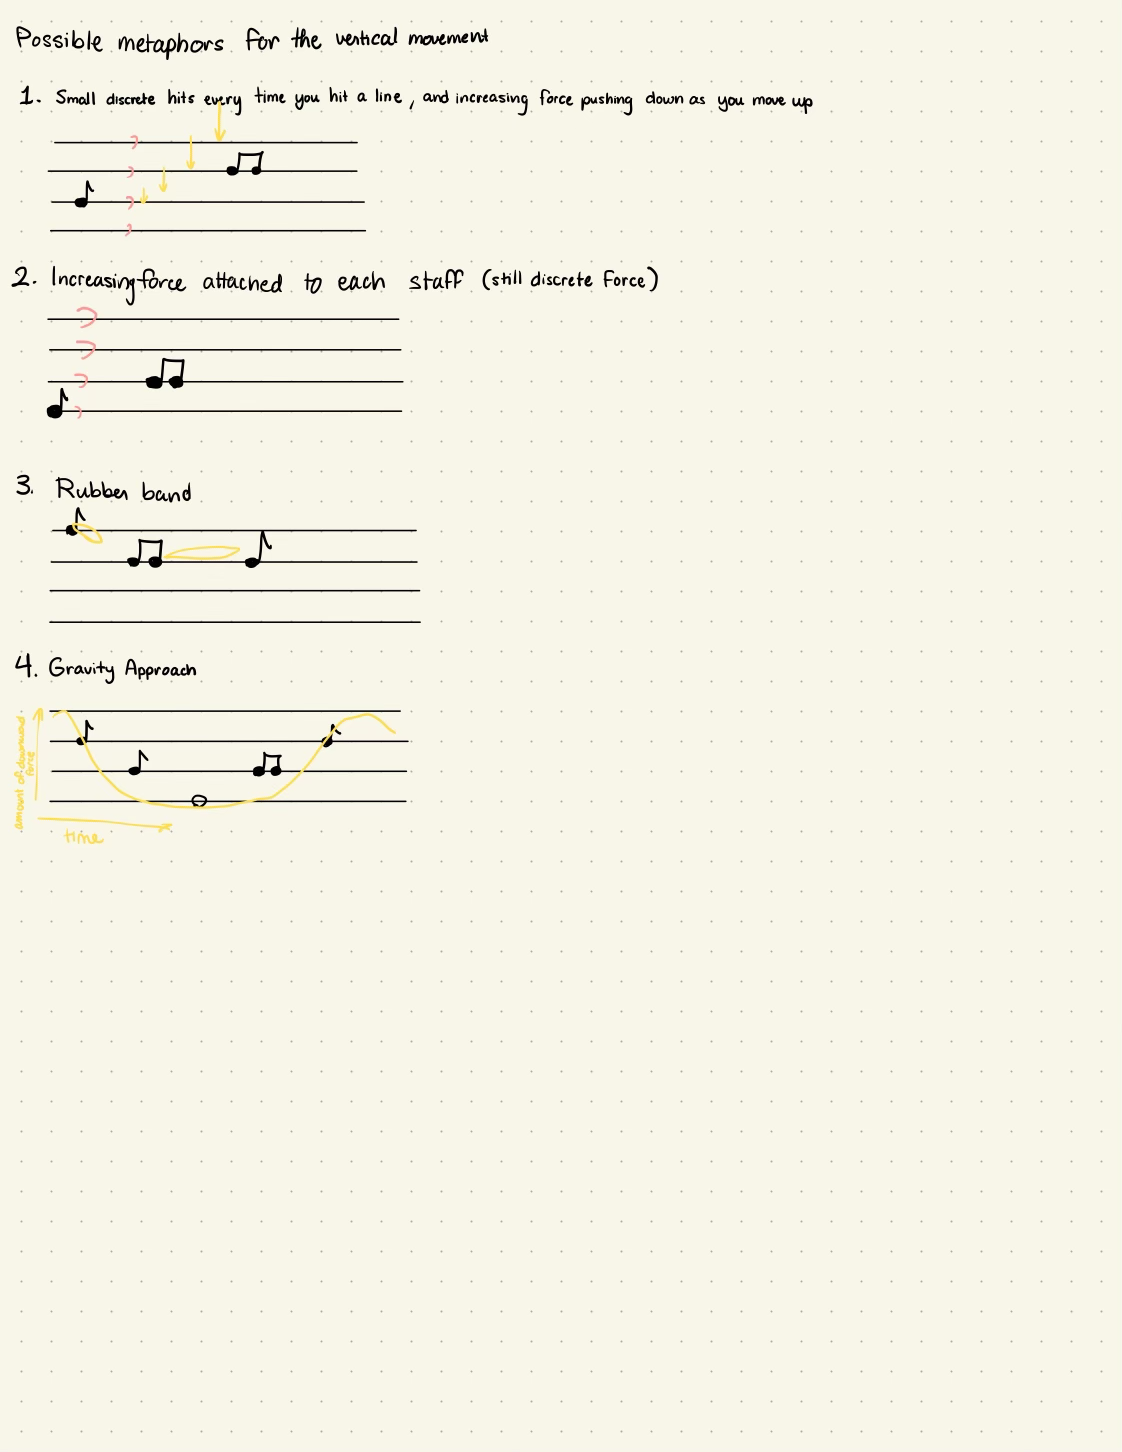 Possible metaphors for the vertical movement
1. Small discrete hits every time you hit a line, and increasing force pushing down as you move up
2. Increasing force attached to each staff (still discrete force)
3. Rubber band
4. Gravity Approach
amount of downward
force
time